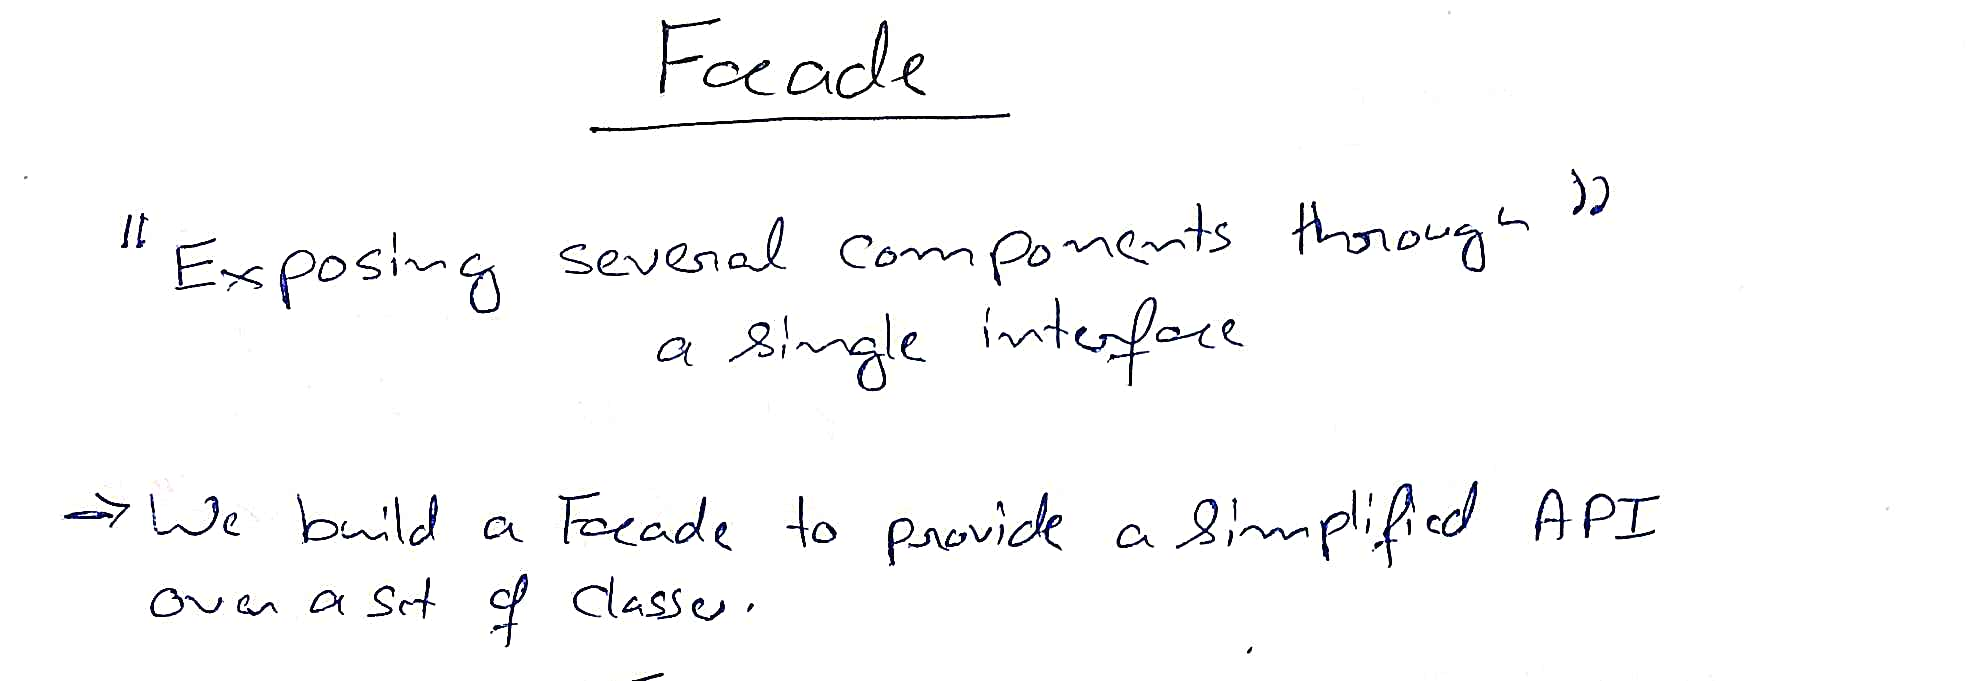 Facade
"Exposing several components thorough"
a single interface
→ We build a Facade to provide a simplified API
over a set of classes.